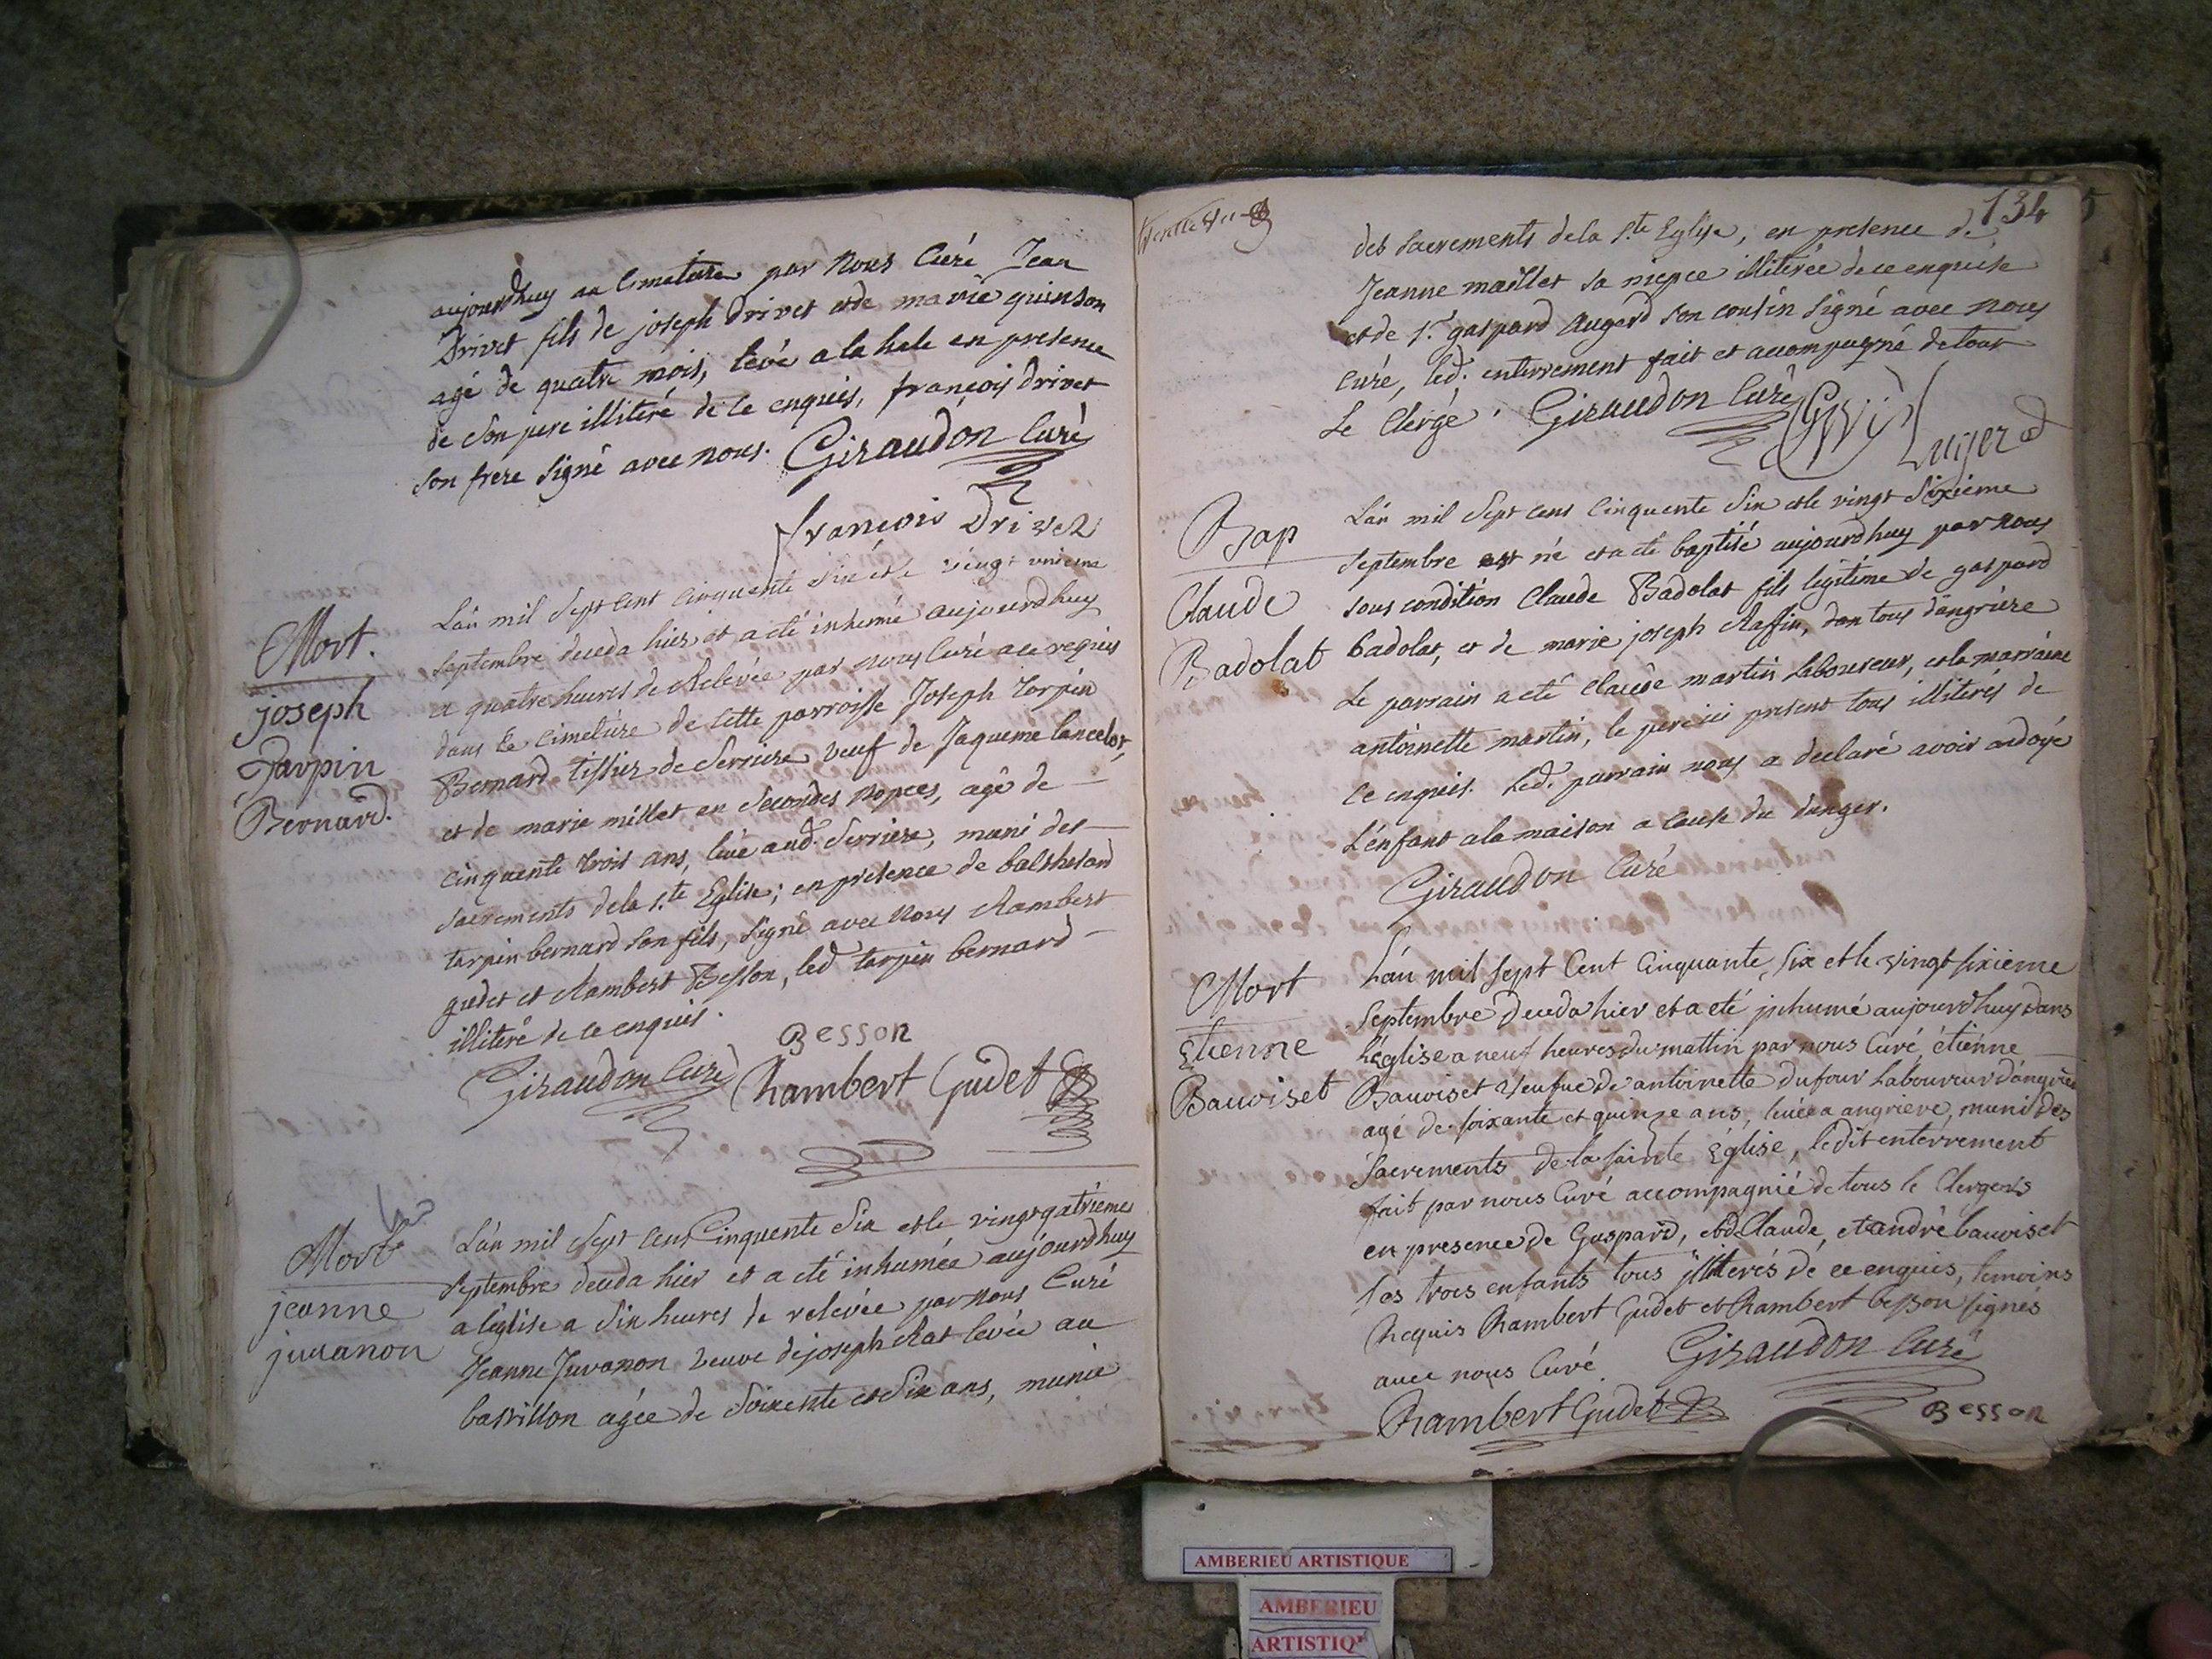 aujourdhuy au cimetiere par nous Curé Jean
Drivet fils de joseph drivet et de marie quinson
agé de quatre mois, levé a la hale en presence
de son pere illitéré de ce enquis, françois drivet
son frere signé avec nous. Giraudon Curé
françois Drivet
Mort.
joseph
Tarpin
Bernard.
L'an mil sept cent cinquente six et le vingt unieme
septembre deceda hier et a été inhumé aujourdhuy
a quatre heures de Relevée par nous Curé a ce requis
dans le cimetiére de cette parroisse Joseph tarpin
Bernard tissier de Serriere veuf de Jaqueme lancelot,
et de marie millet en secondes nopces, agé de
cinquente trois ans, levé aud. Serriere, muni des
sacrements de la s.te Eglise; en presence de balthesard
tarpin bernard son fils, signé avec nous Rambert
gudet et Rambert Besson, led tarpin bernard
illitéré de ce enquis.
Besson
Giraudon Curé Rambert Gudet
Mort
jeanne
juvanon
L'an mil sept cent Cinquente six et le vingt qatrieme
septembre deceda hier et a été inhumée aujourdhuy
a l'église a six heures de relevée par nous Curé
Jeanne Juvanon veuve de joseph Rat levée au
bastillon agée de soixente et six ans, munie
134
des sacrements de la s.te Eglise, en presence de
Jeanne maillet sa niepce illitérée de ce enquise
et de s.r gaspard Augerd son cousin signé avec nous
curé, led. enterrement fait et accompagné de tout
Le Clergé. Giraudon Curé
Augerd
Bap
Claude
Badolat
L'an mil sept cens cinquente six et le vingt sixieme
septembre est né et a été baptisé aujourdhuy par nous
sous condition Claude Badolat fils legitime de gaspard
badolat, et de marie joseph Raffin, dan tous d'angriére
Le parrain a été claude martin laboureur, et la marraine
antoinette martin, le pere ici present tous illitérés de
ce enquis. Led. parrain nous a declaré avoir ondoÿé
L'enfant a la maison a cause du danger.
Giraudon Curé
Mort
Etienne
Bauoiset
L'an mil sept Cent Cinquante, six et le vingt sixieme
septembre deceda hier et a eté jnhumé aujourdhuy dans
L'église a neuf heures du mattin par nous Curé, étienne
Bauoiset veufue de antoinette dufour Laboureur d'angriere
agé de soixante et quinze ans, leuée a angriere, muni des
sacrements de la sainte Eglise, ledit entérrement
fait par nous Curé accompagnié de tous le Clergers
en presence de Gaspard, et d Claude, et andré bauoiset
ses trois enfants tous jlliterés de ce enquis, temoins
Requis Rambert Gudet et Rambert besson signés
auec nous Curé. Giraudon Curé
Rambert Gudet
Besson
AMBERIEU ARTISTIQUE
AMBERIEU
ARTISTIQ